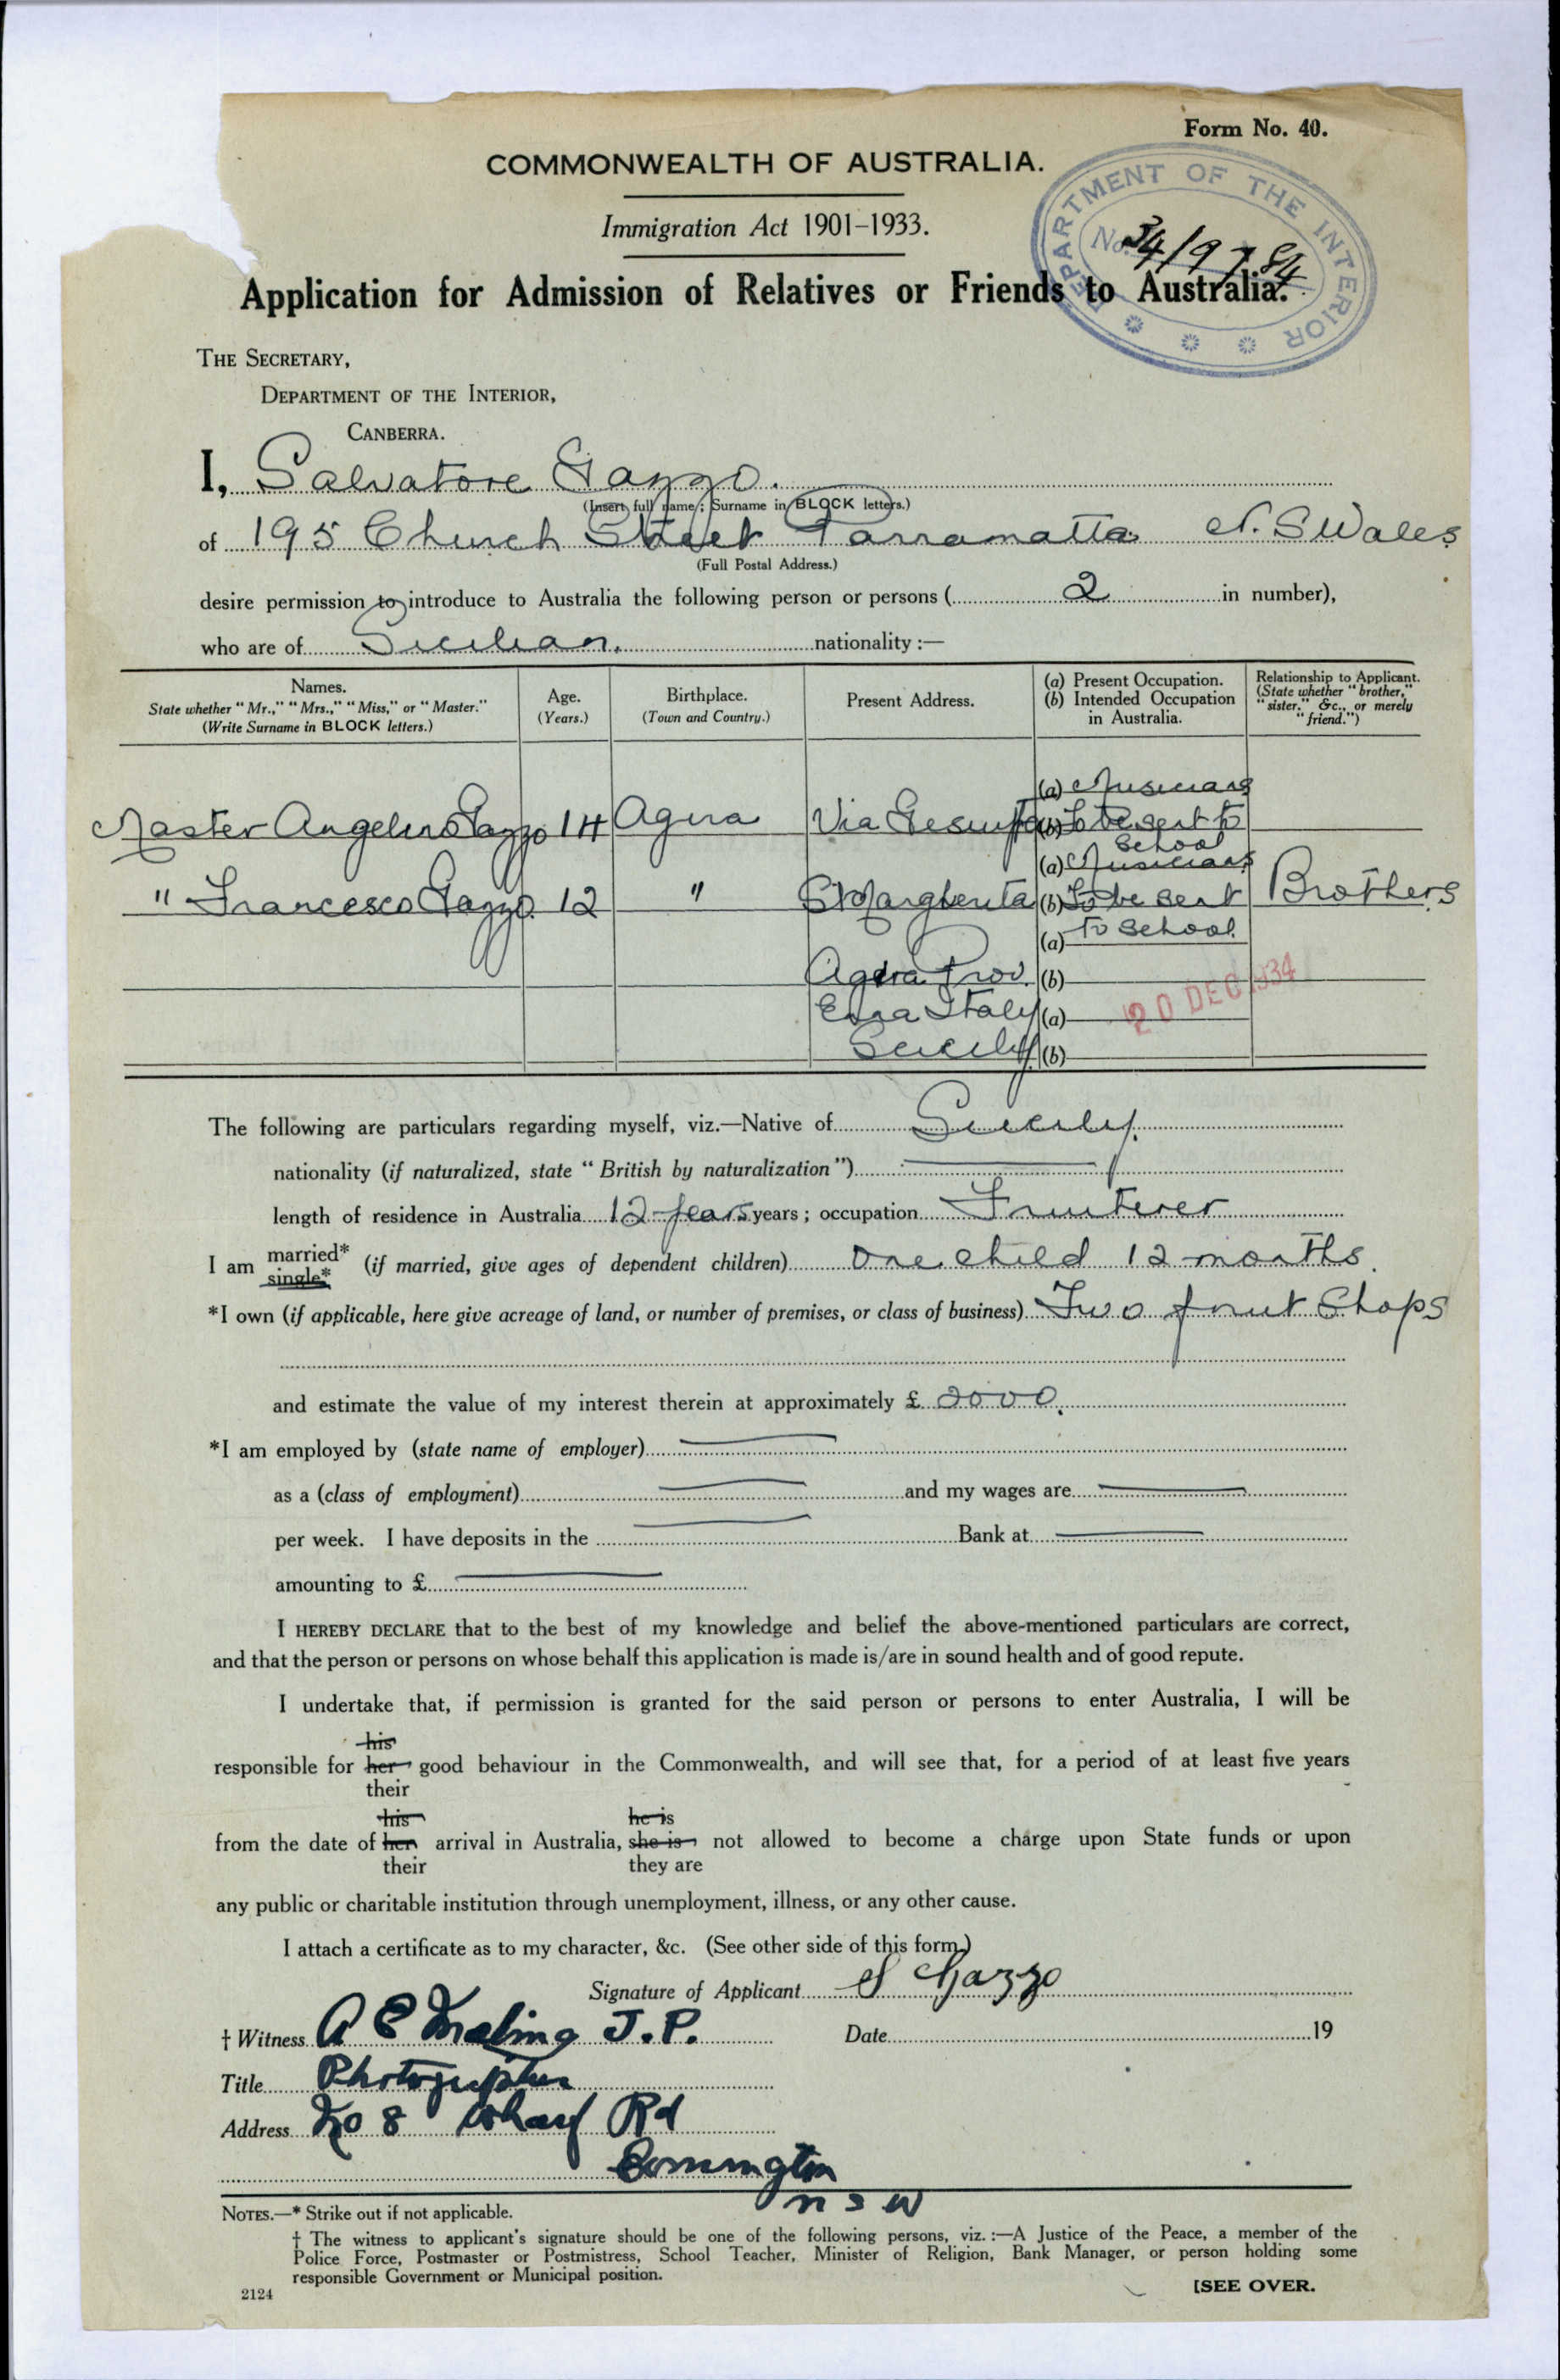 Form No. 40.
COMMONWEALTH OF AUSTRALIA.
Immigration Act 1901-1933.
DEPARTMENT OF THE INTERIOR
No. 34/9784
Application for Admission of Relatives or Friends to Australia.
THE SECRETARY,
DEPARTMENT OF THE INTERIOR,
CANBERRA.
I, Salvatore Gazzo.
(Insert full name; Surname in BLOCK letters.)
of 195 Church Street Parramatta N. S Wales
(Full Postal Address.)
desire permission to introduce to Australia the following person or persons ( 2 in number),
who are of Sicilian. nationality :—
Names.
State whether "Mr.," "Mrs.," "Miss," or "Master."
(Write Surname in BLOCK letters.)
Age.
(Years.)
Birthplace.
(Town and Country.)
Present Address.
(a) Present Occupation.
(b) Intended Occupation
in Australia.
Relationship to Applicant.
(State whether "brother,"
"sister," &c., or merely
"friend.")
Master Angelino Gazzo 14 Agira Via
(a) Musicians
(b) To be sent to
School
" Francesco Gazzo 12 " S Margherita
(a) Musicians
(b) To be sent
to School.
Brothers
Agira Prov.
(a)
(b)
Enna Italy
(a)
Sicily
(b)
20 DEC 1934
The following are particulars regarding myself, viz.—Native of Sicily.
nationality (if naturalized, state "British by naturalization")
length of residence in Australia 12 years years ; occupation Fruiterer
I am married*
single*
(if married, give ages of dependent children) One child 12 months.
*I own (if applicable, here give acreage of land, or number of premises, or class of business) Two fruit Shops
and estimate the value of my interest therein at approximately £ 2000.
*I am employed by (state name of employer)
as a (class of employment) and my wages are
per week. I have deposits in the Bank at
amounting to £
I HEREBY DECLARE that to the best of my knowledge and belief the above-mentioned particulars are correct,
and that the person or persons on whose behalf this application is made is/are in sound health and of good repute.
I undertake that, if permission is granted for the said person or persons to enter Australia, I will be
his
responsible for her good behaviour in the Commonwealth, and will see that, for a period of at least five years
their
his he is
from the date of her arrival in Australia, she is not allowed to become a charge upon State funds or upon
their they are
any public or charitable institution through unemployment, illness, or any other cause.
I attach a certificate as to my character, &c. (See other side of this form.)
Signature of Applicant S Gazzo
† Witness A E J.P.
Date 19
Title Photographer
Address No 8 Wharf Rd
N S W
NOTES.—* Strike out if not applicable.
† The witness to applicant's signature should be one of the following persons, viz. :—A Justice of the Peace, a member of the
Police Force, Postmaster or Postmistress, School Teacher, Minister of Religion, Bank Manager, or person holding some
responsible Government or Municipal position.
2124
[SEE OVER.